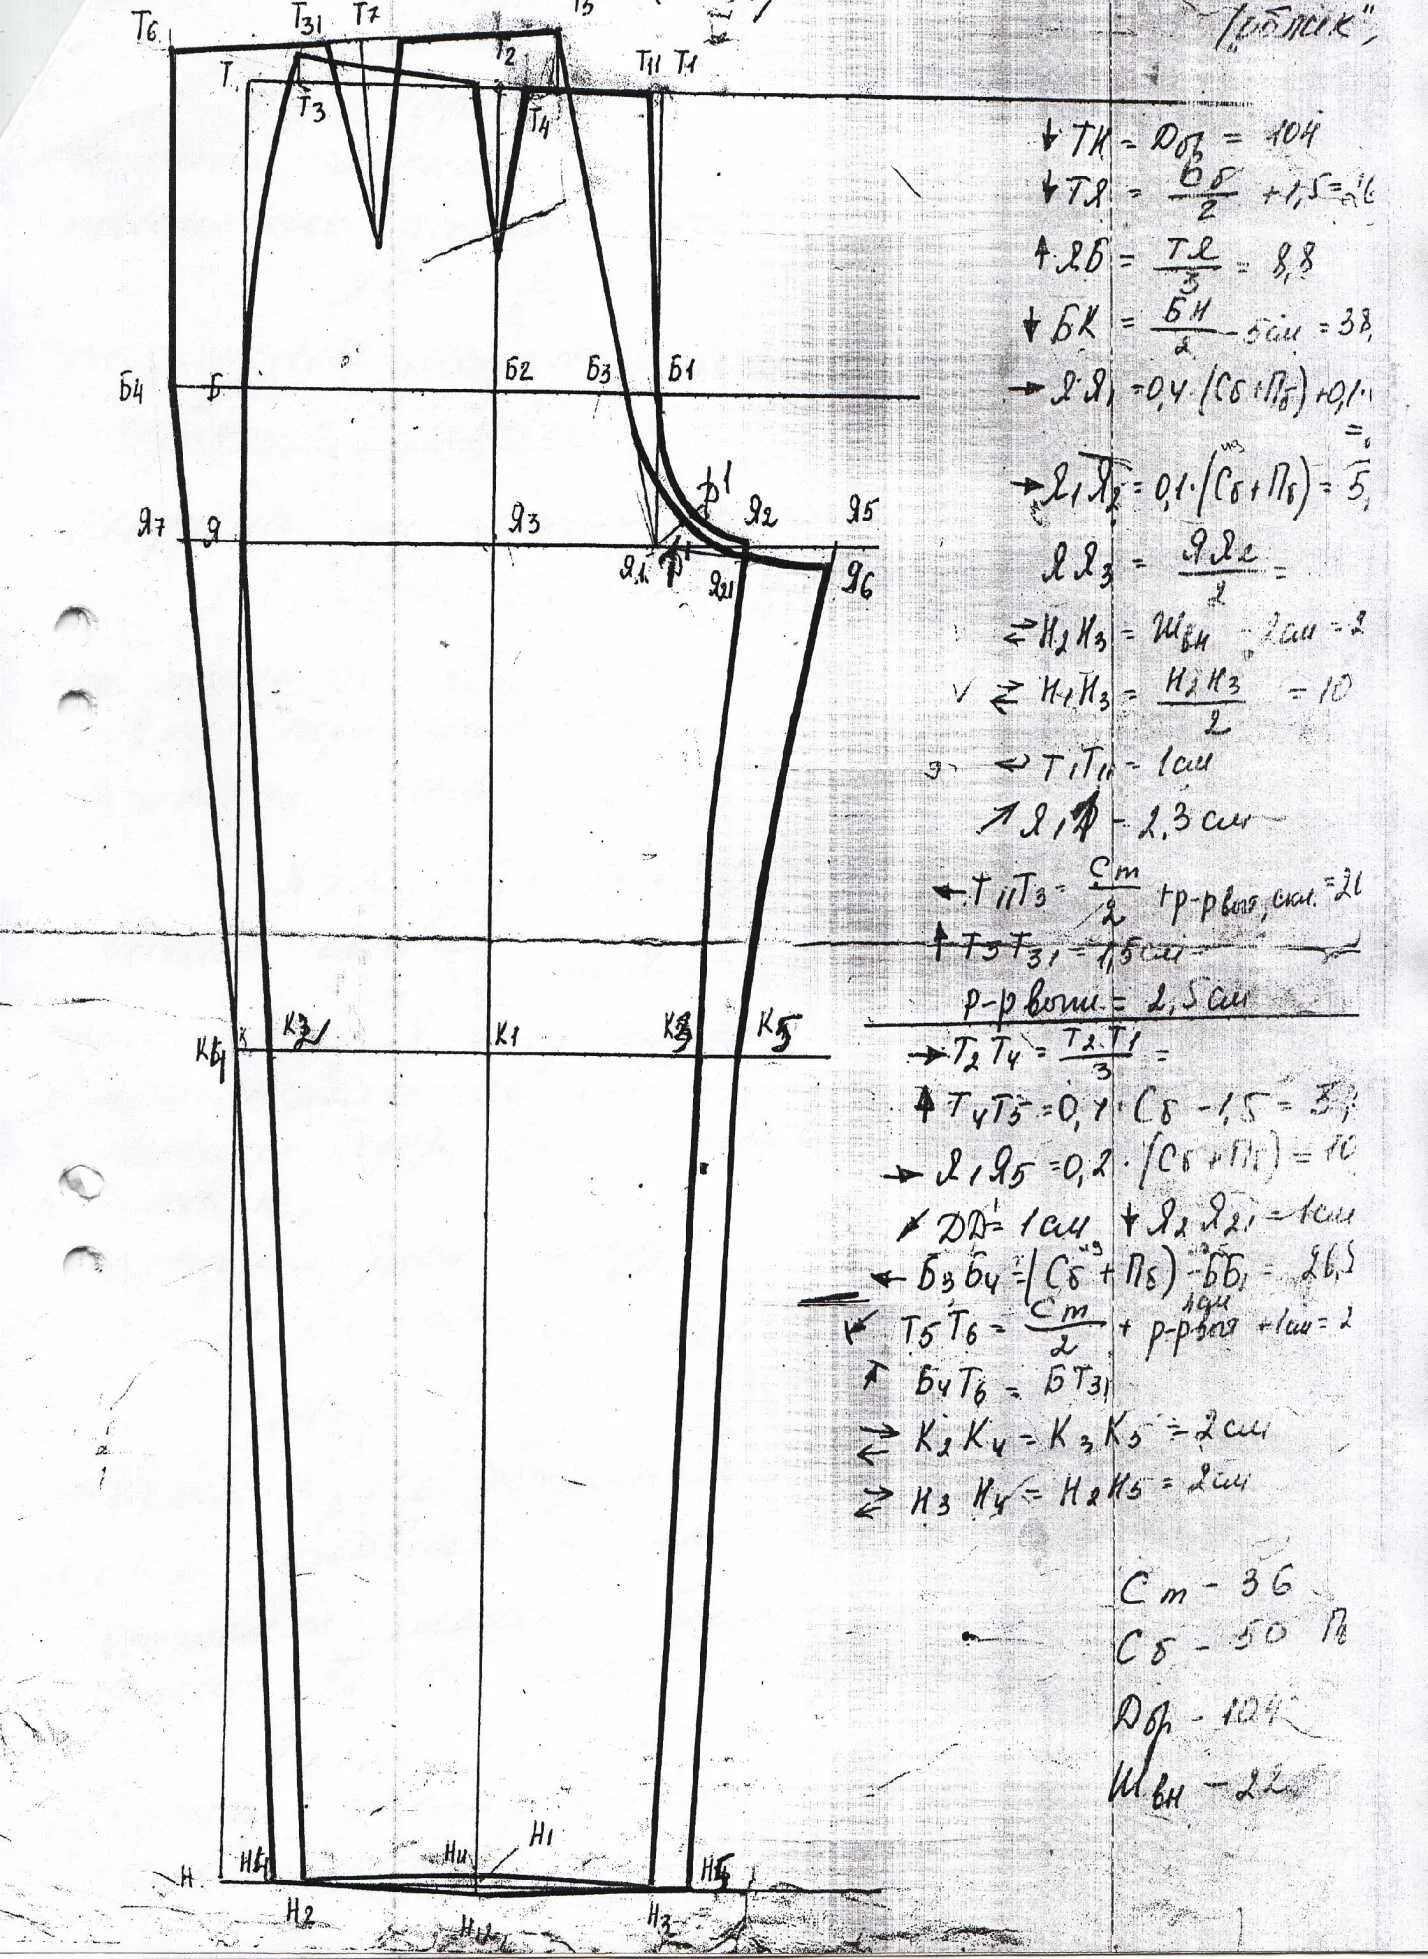 Т6
Т31
Т7
Т5
Т
Т3
Т2
Т4
Т11
Т1
Б4
Б
Б2
Б3
Б1
Я7
Я
Я3
Я1
Я2
Я21
Я5
Я6
К
К1
Н
Н2
Н11
Н12
Н1
Н3
ТН = Дбр = 104
ТЯ = Вб/2 + 1,5 =
ЯБ = ТЯ/3 = 8,8
БК = БН/2 - 5см = 38,
ЯЯ1 = 0,4·(Сб+Пб)+0,1·
=
Я1Я2 = 0,1·(Сб+Пб) = 5,
ЯЯ3 = ЯЯ2/2 =
Н2Н3 = Швн - 2см = 2
Н1Н3 = Н2Н3/2 = 10
Т1Т11 - 1см
- 2,3 см
Т11Т3 = Ст/2 + р-р выт, скл. = 21
Т3Т31 = 1,5см
р-р выт = 2,5см
Т2Т4 = Т2Т1/3 =
Т4Т5 = 0,1·Сб - 1,5 = 3,
Я1Я5 = 0,2·(Сб+Пб) = 10
ДД1 = 1см Я2Я21 = 1см
Б3Б4 = (Сб + Пб) - ББ1 = 26,
Т5Т6 = Ст/2 + р-р выт + 1см = 2
Б4Т6 = БТ31
К2К4 = К3К5 = 2см
Н3Н4 = Н2Н5 = 2см
Ст - 36
Сб - 50
Дбр - 104
Швн - 22